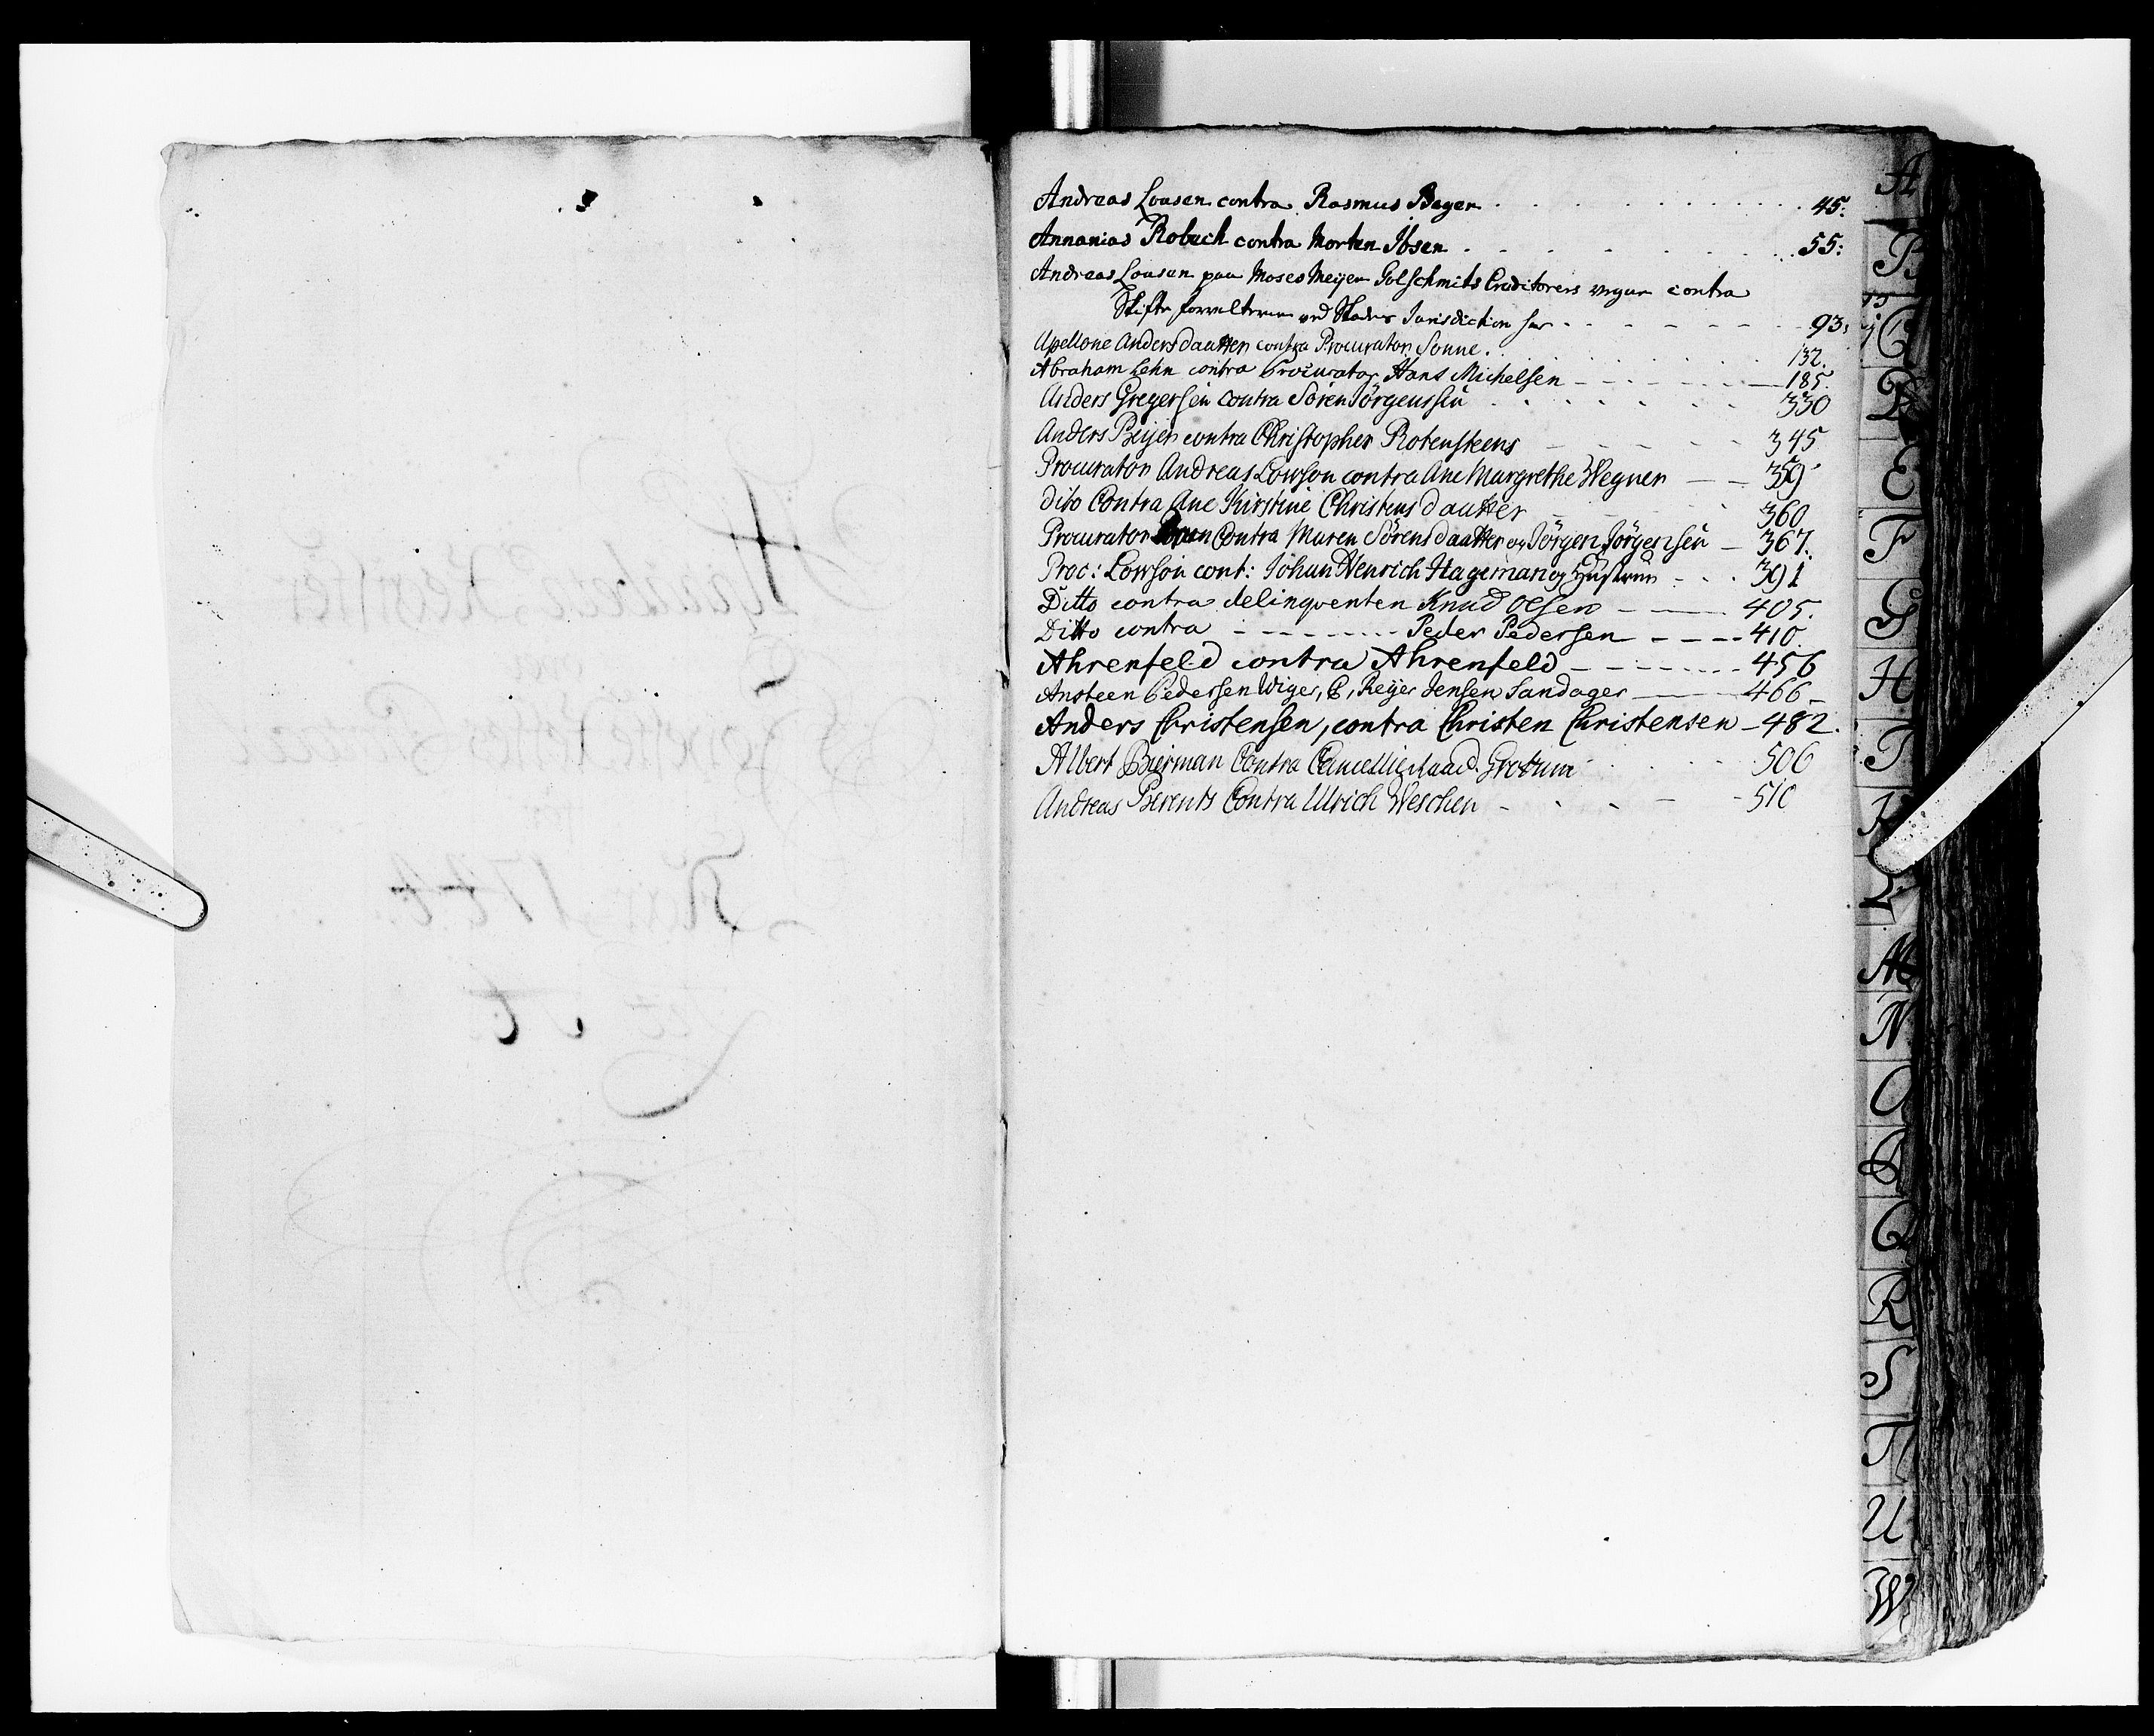 Andreas Lousen contra Rasmus Beyer 45:
Annanias Robech contra Morten Ibsen 55:
Andreas Lousen paa Moses Meijer Golschmits Creditorers vegne contra
Skifte forvalteren ved Stadens Jurisdiction her 93:
Apellone Andersdaatter contra Procurator Sonne. 132.
Abraham Lehn contra Procurator Hans Michelsen 185.
Anders Gregersen contra Sören Jörgenssen 330
Anders Beijer contra Christopher Rotensteens 345
Procurator Andreas Lowson contra Ane Margrethe Wegner 359
dito Contra Ane Kirstine Christensdautter 360
Procurator Contra Maren Sörensdaatter og Jörgen Jörgensen 367.
Proc: Lowson cont: Johan Henrich Hageman og Hustrue 391
Ditto contra delinqventen Knud Olsen 405.
Ditto contra Peder Pedersen 410.
Ahrenfeld contra Ahrenfeld 456
Ansteen Pedersen Wiger, C, Reijer Jensen Sandager 466
Anders Christensen, contra Christen Christensen 482.
Albert Bierman Contra Cancellieraad Grotum 506
Andreas Berents Contra Ulrich Weschen 510
A
B
C
D
E
F
G
H
I
K
L
M
N
O
P
Q
R
S
T
U
W